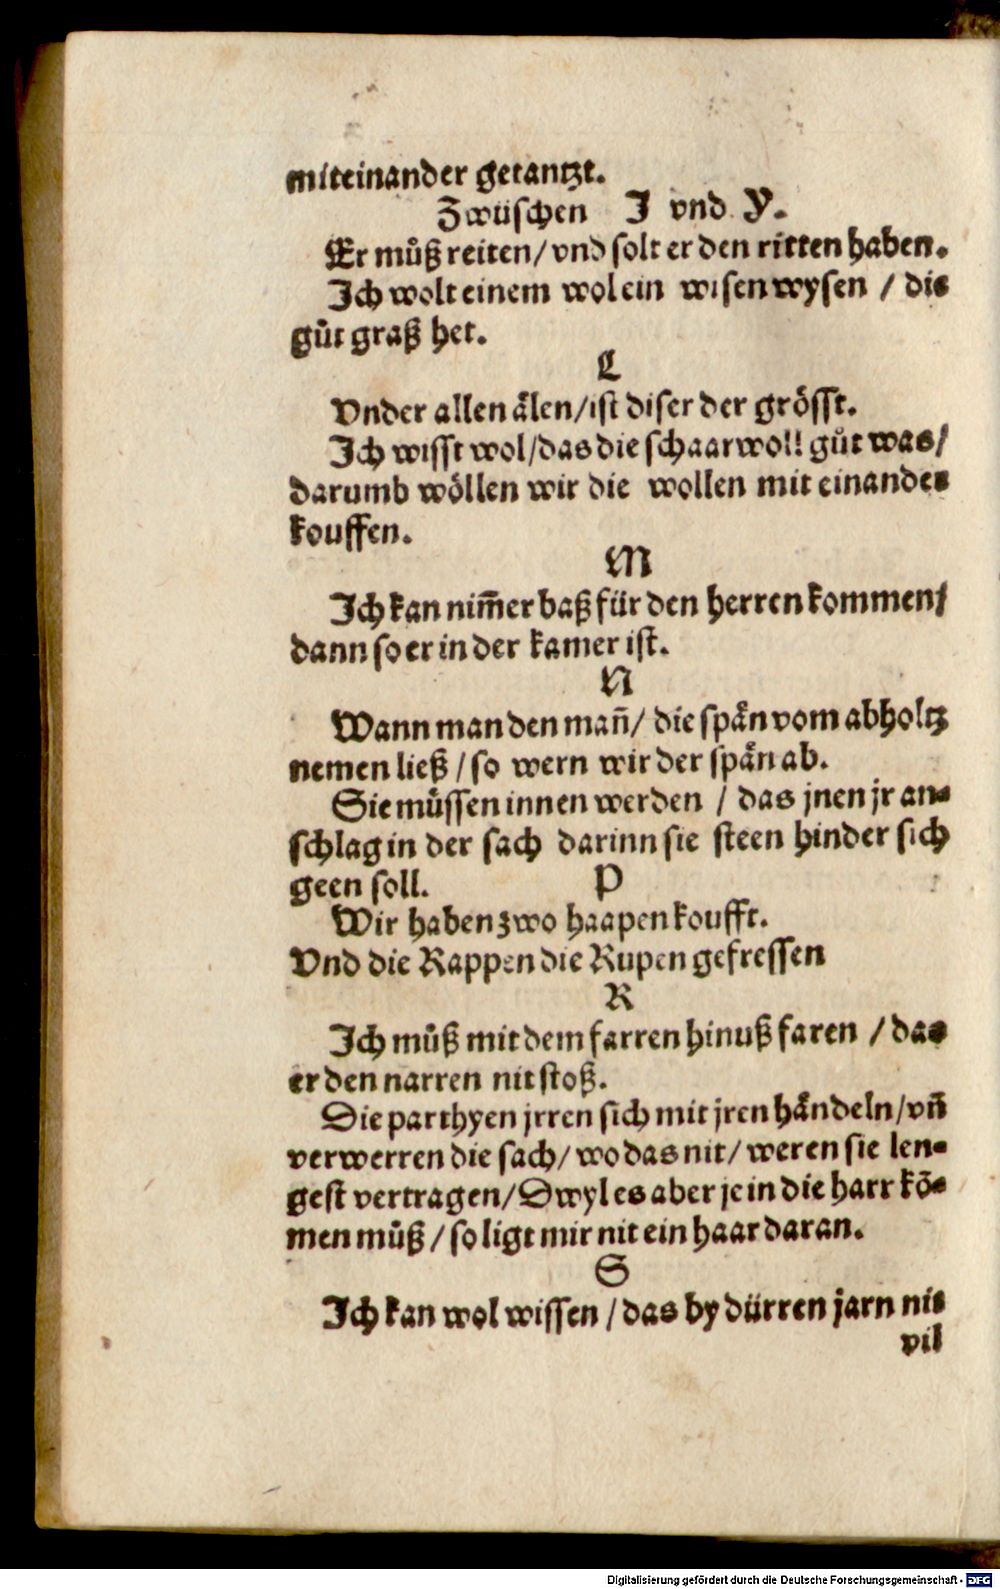 miteinander getantzt.
Zwüschen J vnd Y.
Er můß reiten/vnd solt er den ritten haben.
Jch wolt einem wol ein wisen wysen / die
gůt graß het.
L
Vnder allen ålen/ist diser der grösst.
Jch wisst wol/das die schaarwoll gůt was/
darumb wöllen wir die wollen mit einander
kouffen.
M
Jch kan nim̃er baß für den herren kommen/
dann so er in der kamer ist.
N
Wann man den mañ/ die spån vom abholtz
nemen ließ / so wern wir der spån ab.
Sie müssen innen werden / das jnen jr an-
schlag in der sach darinn sie steen hinder sich
geen soll. P
Wir haben zwo haapen koufft.
Vnd die Rappen die Rupen gefressen
R
Jch můß mit dem farren hinuß faren / das
er den narren nit stoß.
Die parthyen jrren sich mit jren håndeln/vñ
verwerren die sach/ wo das nit/ weren sie len-
gest vertragen/Dwyl es aber je in die harr kõ-
men můß / so ligt mir nit ein haar daran.
S
Jch kan wol wissen / das by dürren jarn nit
vil
Digitalisierung gefördert durch die Deutsche Forschungsgemeinschaft - DFG